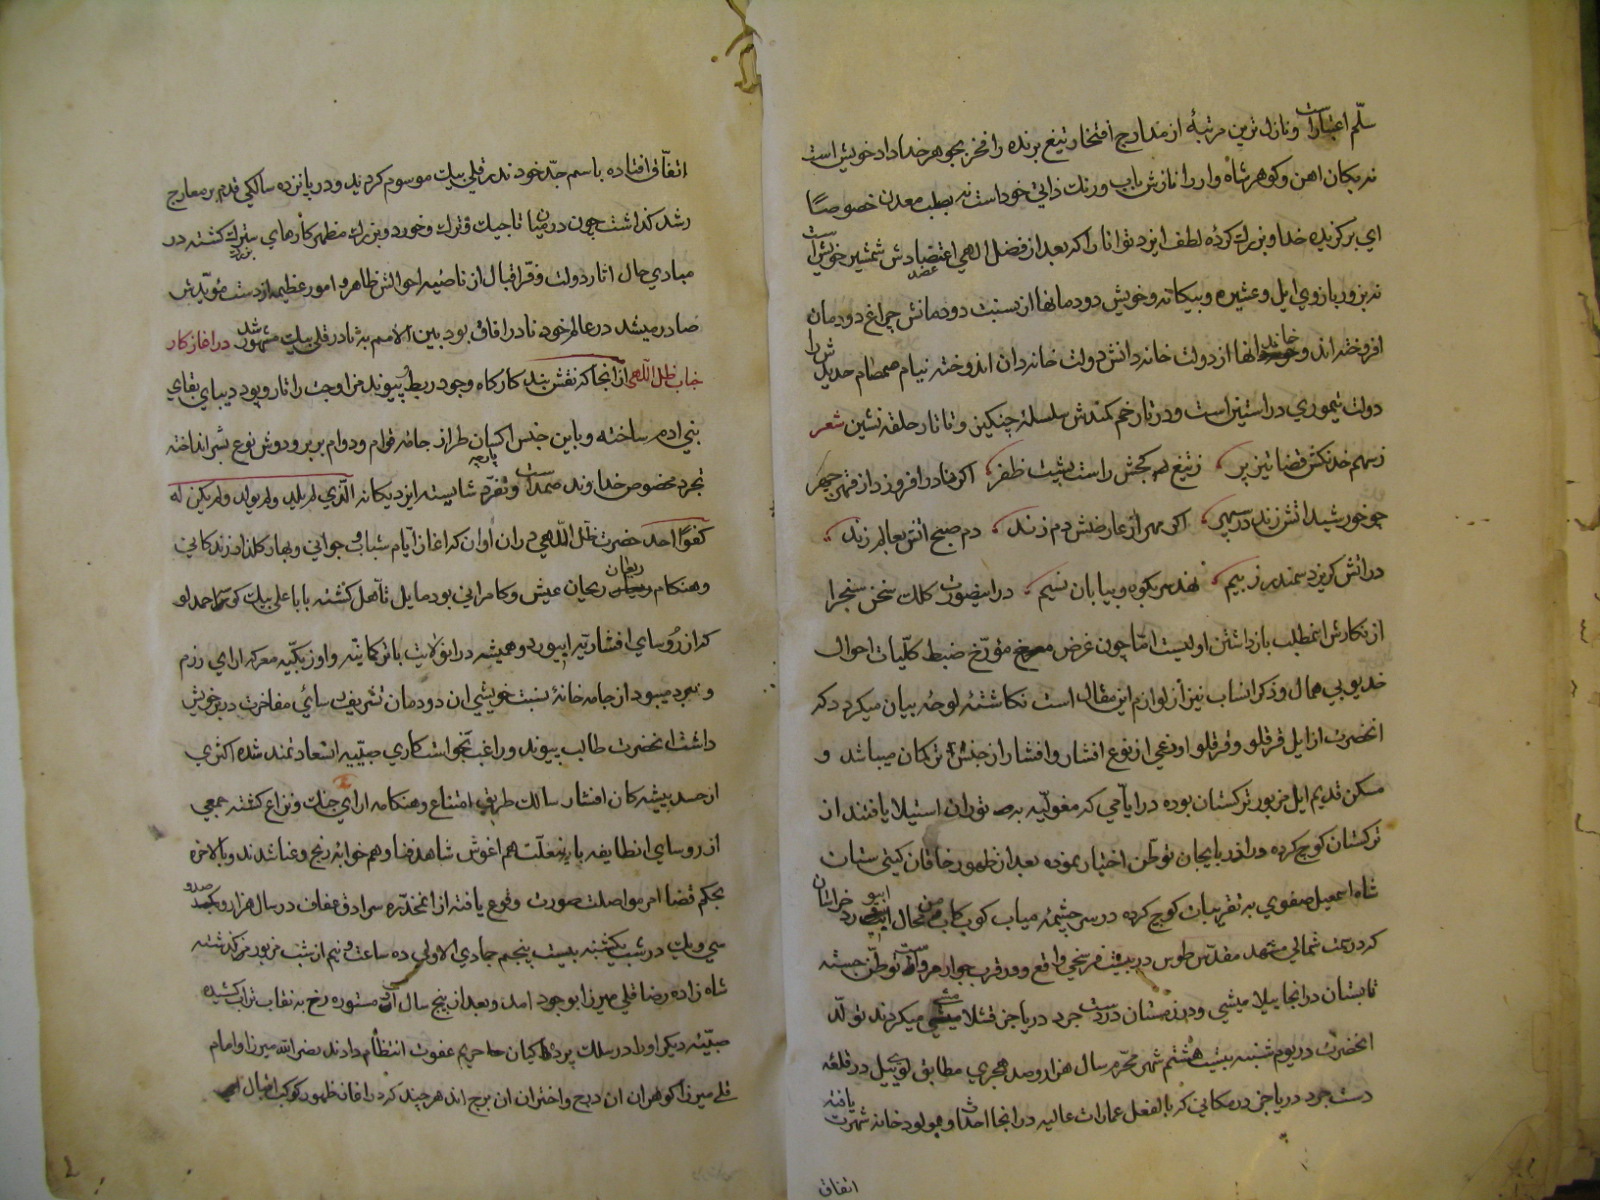 سلّم اعتبار است و نازل ترین مرتبهٔ از مدارج افتخار تیغ برنده را فخر بجوهر خداداد خویش است
نه بکان اهن و کوهر شاه وار را نازش بآب و رنک ذاتی خود است نه بصلب معدن خصوصًا
اي برکزیده خدا و بزرك کرده لطف ایزد توانا را که بعد از فضل الهي اعتضادش شمشیر خویش است
نه بزور بازوي ایل و عشیره و بیکانه و خویش دودمانها از نسبت دودمانش چراغ دودمان
افروخته اند و خاندانها از دولت خانه زادانش دولت خاندان اندوخته نیام صمصام
دولت تیموري در استین است و در تار خم کمندش سلسلهٔ چنکیز و تاتار حلقه نشین شعر
ز سهم خدنکش قضا تیز پر ز تیغ کجش راست پشت ظفر اکر نار افروزد از قهر چهر
چو خورشید اتش زند در سپهر اکر مهر از عارضش دم زند دم صبح اتش بعالم زند
در اتش کریزد سمندر ز بیم نهد سر بکوه و بیابان نسیم در اینصورت کلك سخن سنج را
از نکارش اینمطلب باز داشتن اولیست امّا چون غرض مؤرّخ ضبط کلّیات احوال
خدیو بي همال و ذکر انساب نیز از لوازم این مقال است نکاشتهٔ لوحهٔ بیان میکردد که
انحضرت از ایل قرقلو و قرقلو اویمي از نوع افشار و افشار از جنس ترکمان میباشد و
مسکن قدیم ایل مزبور ترکستان بوده در ایّامي که مغولیّه بر توران استیلا یافتند از
ترکستان کوچ کرده در اذربایجان توطّن اختیار نموده بعد از ظهور خاقان کیتي ستان
شاه اسمعیل صفوي به تقریبات کوچ کرده در سر چشمهٔ میاب کوبکان من محال ابیورد خراسان
که در سمت شمالي مشهد مقدّس طوس در بیست فرسخي واقع و در قرب جوار مرو است توطّن جسته
تابستان در انجا ییلامیشي و در زمستان در دست جرد دریاجز قشلامیشي میکردند تولّد
انحضرت در یوم شنبه بیست هشتم شهر محرّم سال هزار و صد هجري مطابق لوي ییل در قلعهٔ
دست جرد دریاجز در مکاني که بالفعل عمارات عالیه در انجا احداث و بمولود خانه شهرت یافته
اتفاق
اتفاق افتاده باسم جدّ خود ندر قلي بیك موسوم کردید و در پانزده سالکي قدم بر معارج
رشد کذاشت چون درمیان تاجیك و ترك و خورد و بزرك مظهر کارهاي سترك کشته در
مبادي حال اثار دولت و فرّ اقبال از ناصیهٔ احوالش ظاهر و امور عظیمه از دست مؤیّدش
صادر میشد در عالم خود نادر افاق بود بین الامم به نادر قلي بیك مشهور شد در اغاز کار
جناب ظلّ اللّهي از انجا که نقش بند کارکاه وجود ربط پیوند مزاوجت را تار و پود دیباي بقاي
بني ادم ساخته و باین جنس اکسان طراز جامهٔ قوام و دوام بر بر و دوش نوع بشر انداخته
تجرد مخصوص خداوند صمد است و تفرّد شایسته ایزد یکانه الّذي لم یلد و لم یولد و لم یکن له
کفوًا احد حضرت ظلّ اللّهي دران اوان که اغاز ایّام شباب و جواني و بهار کلزار زندکاني
و هنکام ریعان ریحان عیش و کامراني بود مایل تأهل کشته بابا علي بیك کوسه احمدلو
که از رؤساي افشاریه ابیورد و همیشه در انولایت با ترکمانیّه و اوزبکیّه معرکه اراي رزم
و نبرد میبود از جامه خانهٔ نسبت خویشي ان دودمان تشریف سائي مفاخرت در بر خویش
داشت انحضرت طالب پیوند و راغب بخواستکاري صبیّه ان سعادتمند شده اکثري
از حسد پیشه کان افشار سالك طریق امتناع و هنکامه اراي جنك و نزاع کشته جمعي
از روساي انطایفه باینعلّت هم اغوش شاهد فنا و هم خوابهٔ رنج و عنا شدند و بالاخره
بحکم قضا امر مواصلت صورت وقوع یافته از انمخدّره سرادق عفاف در سال هزار و صد و
سي و یك در شب یکشنبه بیست پنجم جمادي الاولي ده ساعت و نیم از شب مزبور مرکذشته
شاه زاده رضا قلي میرزا بوجود امد و بعد از پنج سال ان مستوره رخ به نقاب تراب کشیده
صبیّهٔ دیکر او را در سلك پردکیان حریم عفوت انتظام دادند نصر اللّه میرزا و امام
قلي میرزا کوهران ان درج و اختران ان برج اند هر چند که در افاق ظهور کوکب اقبال